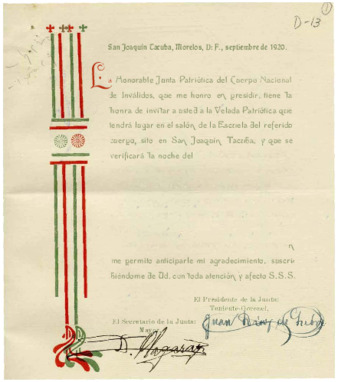 D-13
1
San Joaquín Cacuba, Morelos, D. F., septiembre de 1920.
La Honorable Junta Patriótica del Cuerpo Nacional
de Inválidos, que me honro en presidir, tiene la
honra de invitar a usted a la Velada Patriótica que
tendrá lugar en el salón, de la Escuela del referido
cuerpo, sito en San Joaquín Tacuba, y que se
verificará la noche del
me permito anticiparle mi agradecimiento, suscri-
biéndome de Ud. con toda atención, y afecto S.S.S.
El Presidente de la Junta:
Teniente-Coronel,
El Secretario de la Junta:
Mayor,
Juan
D.